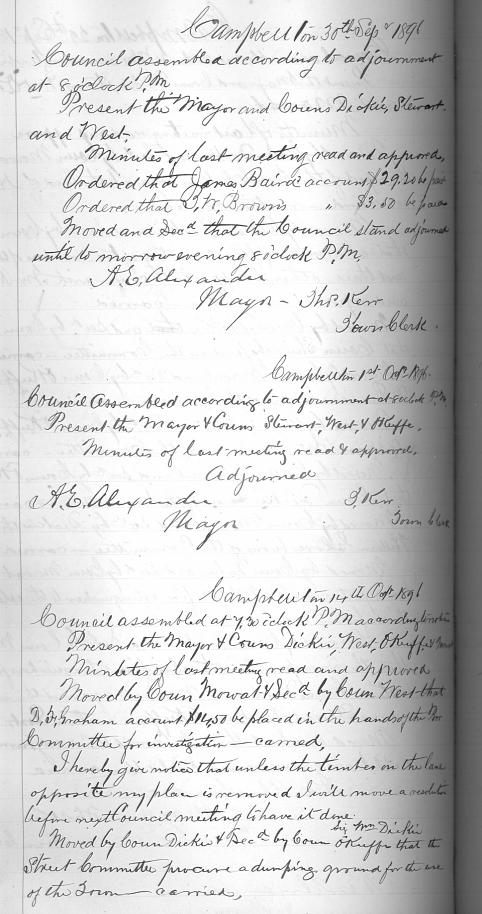 Campbellton 30th Sepr 1896
Council assembled according to adjournment
at 8 o'clock P.M.
Present the Mayor and Couns Dickie, Stewart
and West,
Minutes of last meeting read and approved,
Ordered that James Baird's account $29.20 be paid
Ordered that Brown's " $3,50 be paid
Moved and Secd that the Council stand adjourned
until to morrow evening 8 o'clock P.M,
A.E. Alexander
Mayor - Thos. Kerr
Town Clerk.
Campbellton 1st Octr 1896.
Council Assembled according to adjournment at 8 oclock P.M,
Present the Mayor & Couns Stewart, West, & O'Keeffe.
Minutes of last meeting read & approved,
Adjourned
A.E. Alexander T. Kerr
Mayor Town Clerk
Campbellton 14th Octr 1896
Council assembled at 7,30 o'clock P.M according to notice
Present the Mayor & Couns Dickie, West, O'Keeffe & Mowat
Minutes of last meeting read and approved
Moved by Coun Mowat & Secd by Coun West that
D, Graham account $14,50 be placed in the hands of the Poor
Committee for investigation — carried,
I hereby give notice that unless the timber on the lane
opposite my place is removed I will move a resolution
before next Council meeting to have it done.
Sig Wm Dickie
Moved by Coun Dickie & Secd by Coun O'Keeffe that the
Street Committee procure a dumping ground for the use
of the Town — carried,